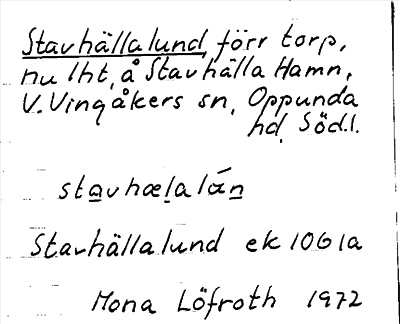 Stavhällalund, förr torp,
nu lht, å Stavhälla Hamn,
V. Vingåkers sn, Oppunda
hd, Södl.
stavhælalán
Stavhällalund ek 10G1a
Mona Löfroth 1972